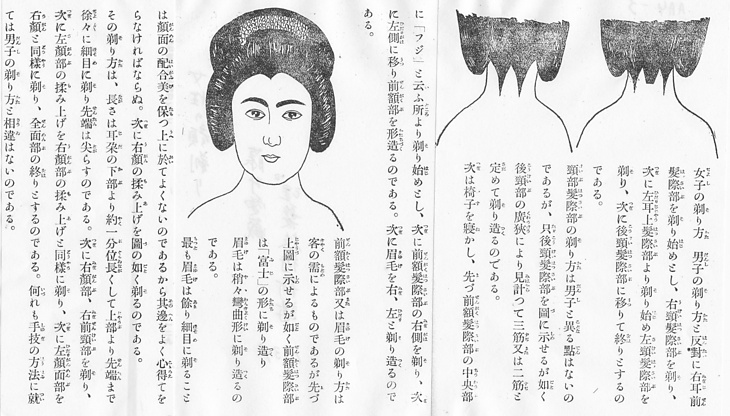 女子の剃り方　男子の剃り方と反對に右耳前
髮際部を剃り始めとし、右頸髮際部を剃り、
次に左耳上髮際部より剃り始め左頸髮際部を
剃り、次に後頸髮際部に移りて終りとするの
である。
頸部髮際部の剃り方は男子と異る點はないの
であるが、只後頸髮際部を圖に示せるが如く
後頸部の廣狹により見計つて三筋又は二筋と
定めて剃り造るのである。
次は椅子を寢かし、先づ前額髮際部の中央部
に「フジ」と云ふ所より剃り始めとし、次に前額髮際部の右側を剃り、次
に左側に移り前額部を形造るのである。次に眉毛を右、左と剃り造るので
ある。
前額髮際部又は眉毛の剃り方は
客の需によるものであるが先づ
上圖に示せるが如く前額髮際部
は「富士」の形に剃り造り
眉毛は稍々彎曲形に剃り造るの
である。
最も眉毛は餘り細目に剃ること
は顏面の配合美を保つ上に於てよくないのであるから其邊をよく心得てを
らなければならぬ。次に右顏の揉み上げを圖の如く剃るのである。
その剃り方は、長さは耳朶の下部より約一分位長くして上部より先端まで
徐々に細目に剃り先端は尖らすのである。次に右顏部、右前頸部を剃り、
次に左顏部の揉み上げを右顏部の揉み上げと同樣に剃り、次に左顏面部を
右顏と同樣に剃り、全面部の終りとするのである。何れも手技の方法に就
ては男子の剃り方と相違はないのである。